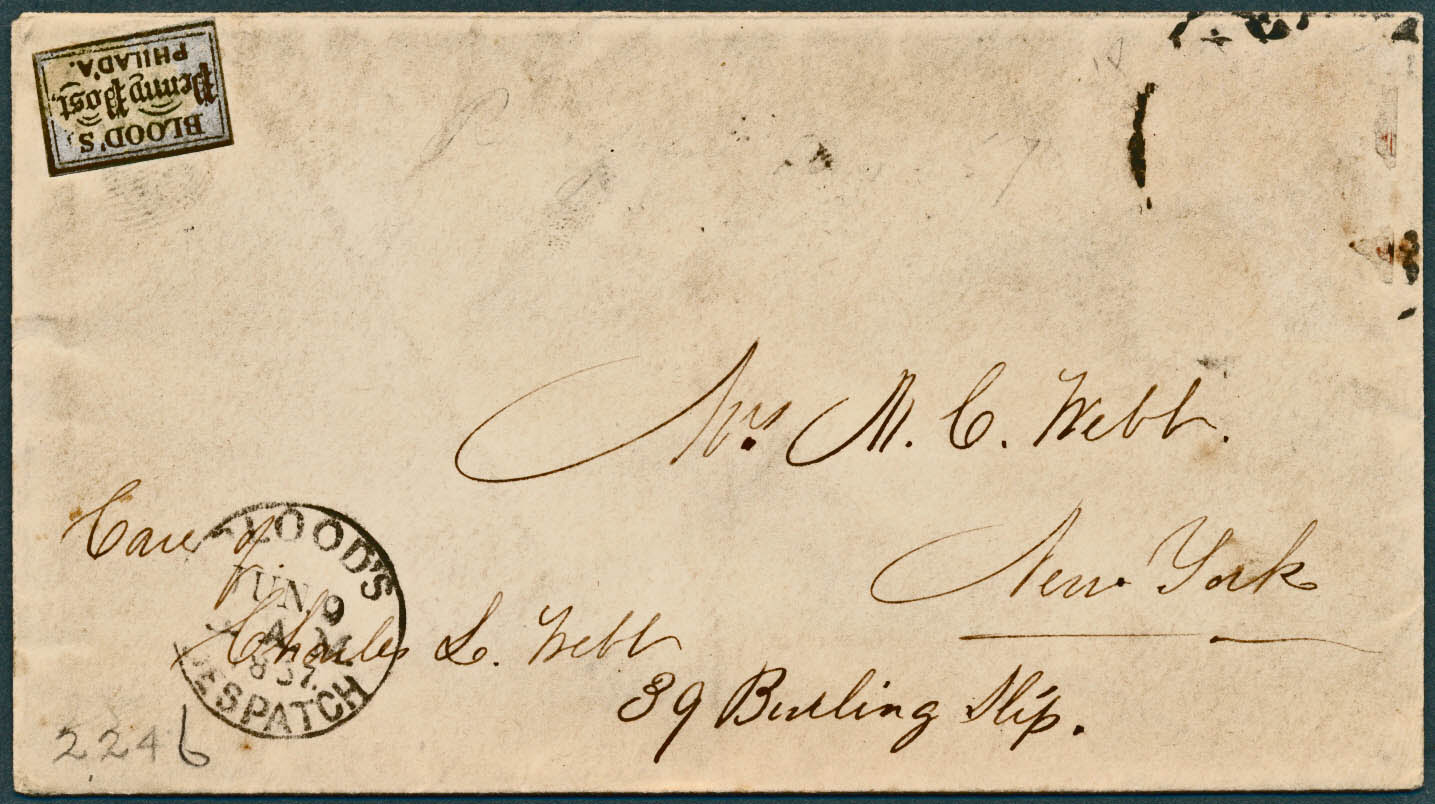 BLOOD'S
Penny Post,
PHILAD'A.
Mrs. M. C. Webb.
New York
Care of
Charles L. Webb
39 Burling Slip.
BLOOD'S
JUN 9
A.M.
1857.
DESPATCH
2246